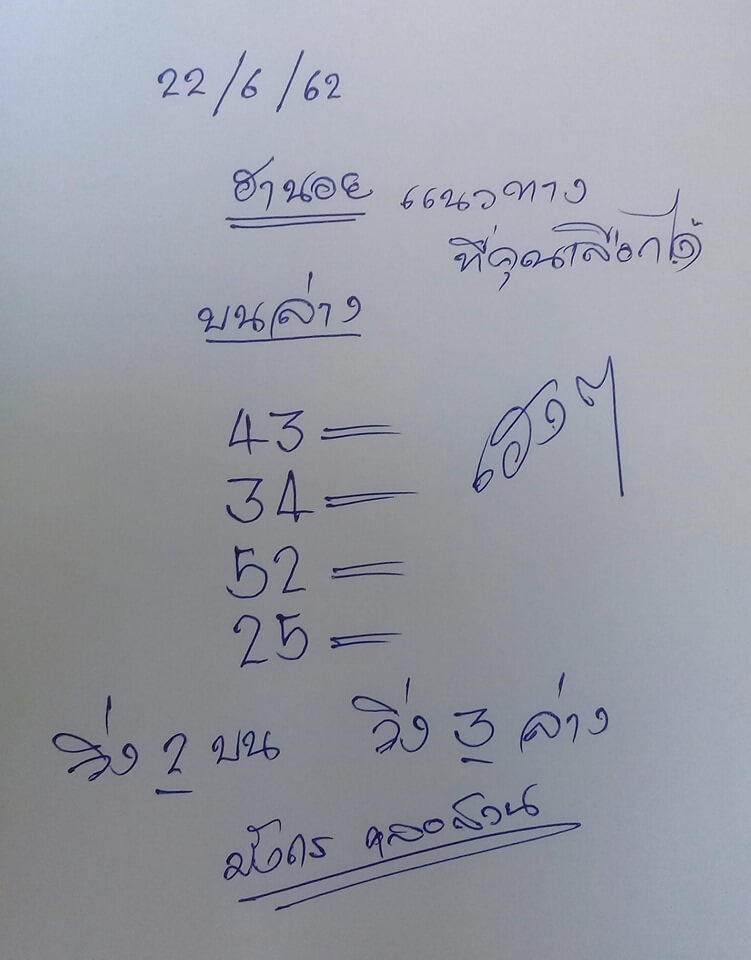 22/6/62
ฮานอย แนวทาง
ที่คุณเลือกได้
บนล่าง
43=
34=
52=
25=
เฮงๆ
วิ่ง 2 บน วิ่ง 3 ล่าง
มังกร คลองสวน